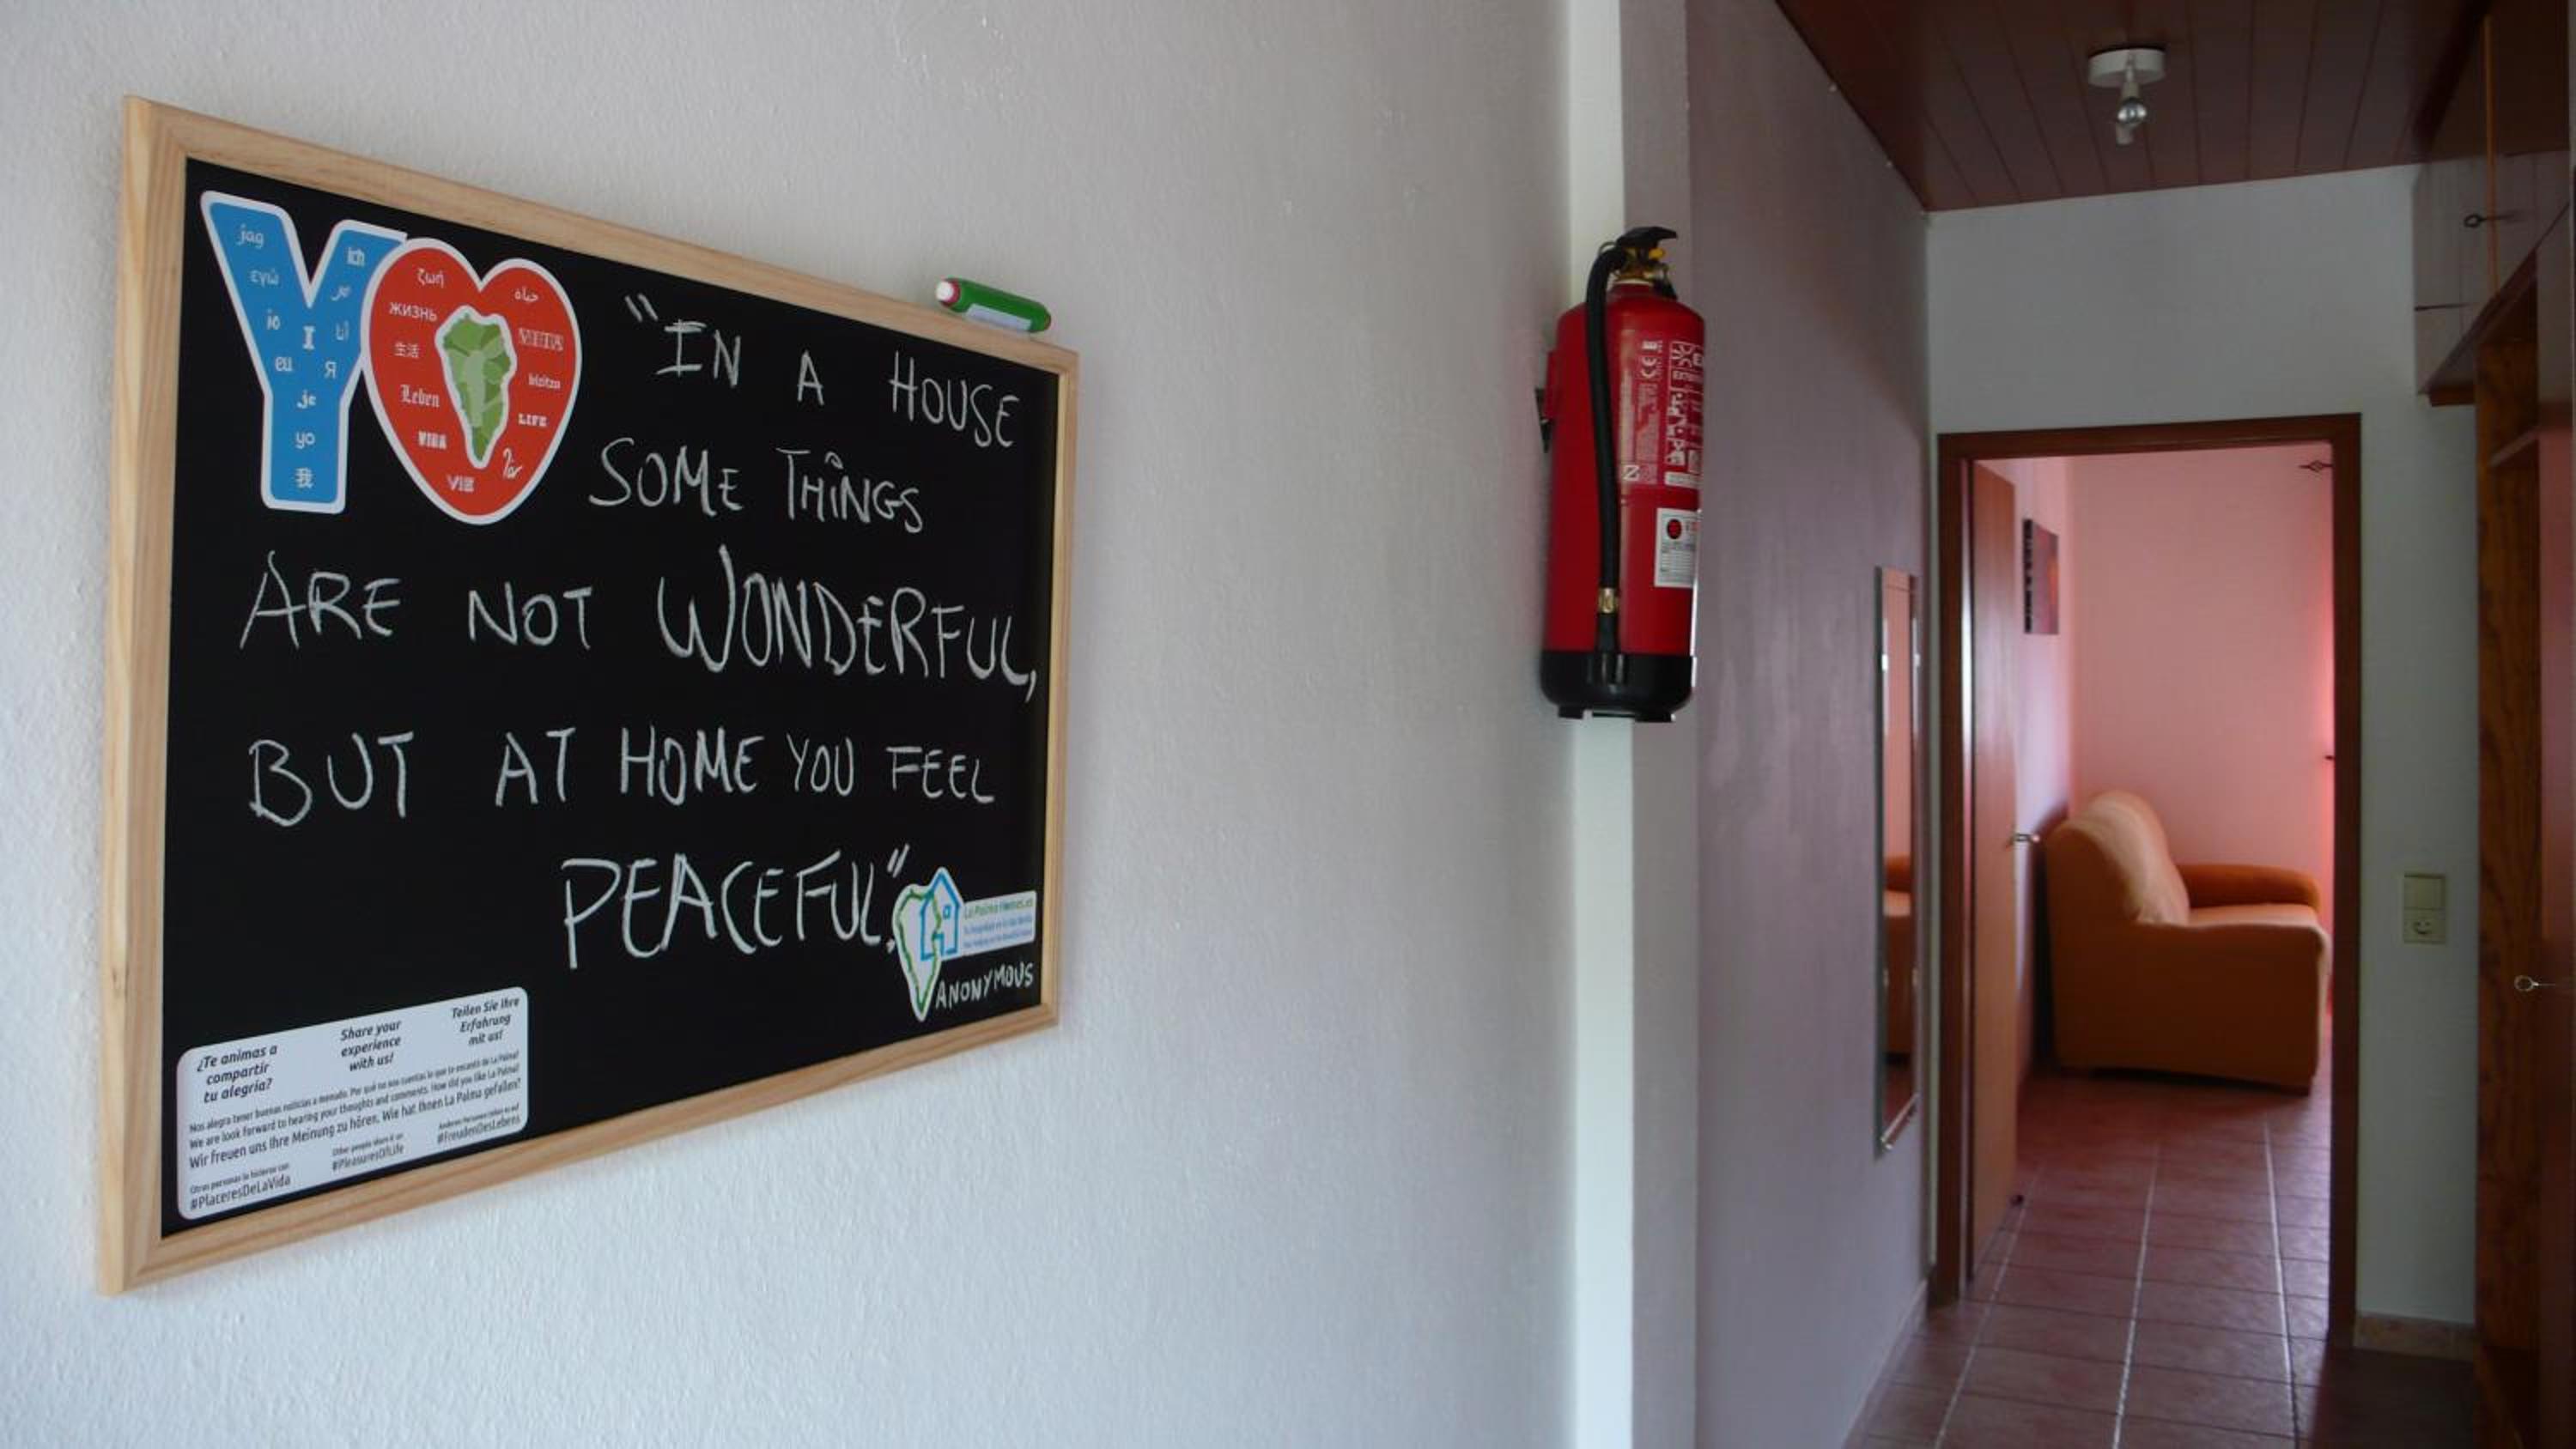 YO
jag
ich
εγώ
io
I
eu
Я
je
yo
我
ζωή
حياة
жизнь
生活
bizitza
Leben
LIFE
VIDA
VIE
"IN A HOUSE
SOME THINGS
ARE NOT WONDERFUL,
BUT AT HOME YOU FEEL
PEACEFUL."
La Palma Homes.es
ANONYMOUS
¿Te animas a
compartir
tu alegría?
Share your
experience
with us!
Teilen Sie Ihre
Erfahrung
mit us!
Nos alegra tener buenas noticias a menudo. Por qué no nos cuentas lo que te encantó de La Palma?
We are look forward to hearing your thoughts and comments. How did you like La Palma?
Wir freuen uns Ihre Meinung zu hören. Wie hat Ihnen La Palma gefallen?
Otras personas lo hicieron con
#PlaceresDeLaVida
Other people share it on
#PleasuresOfLife
#FreudenDesLebens
CE